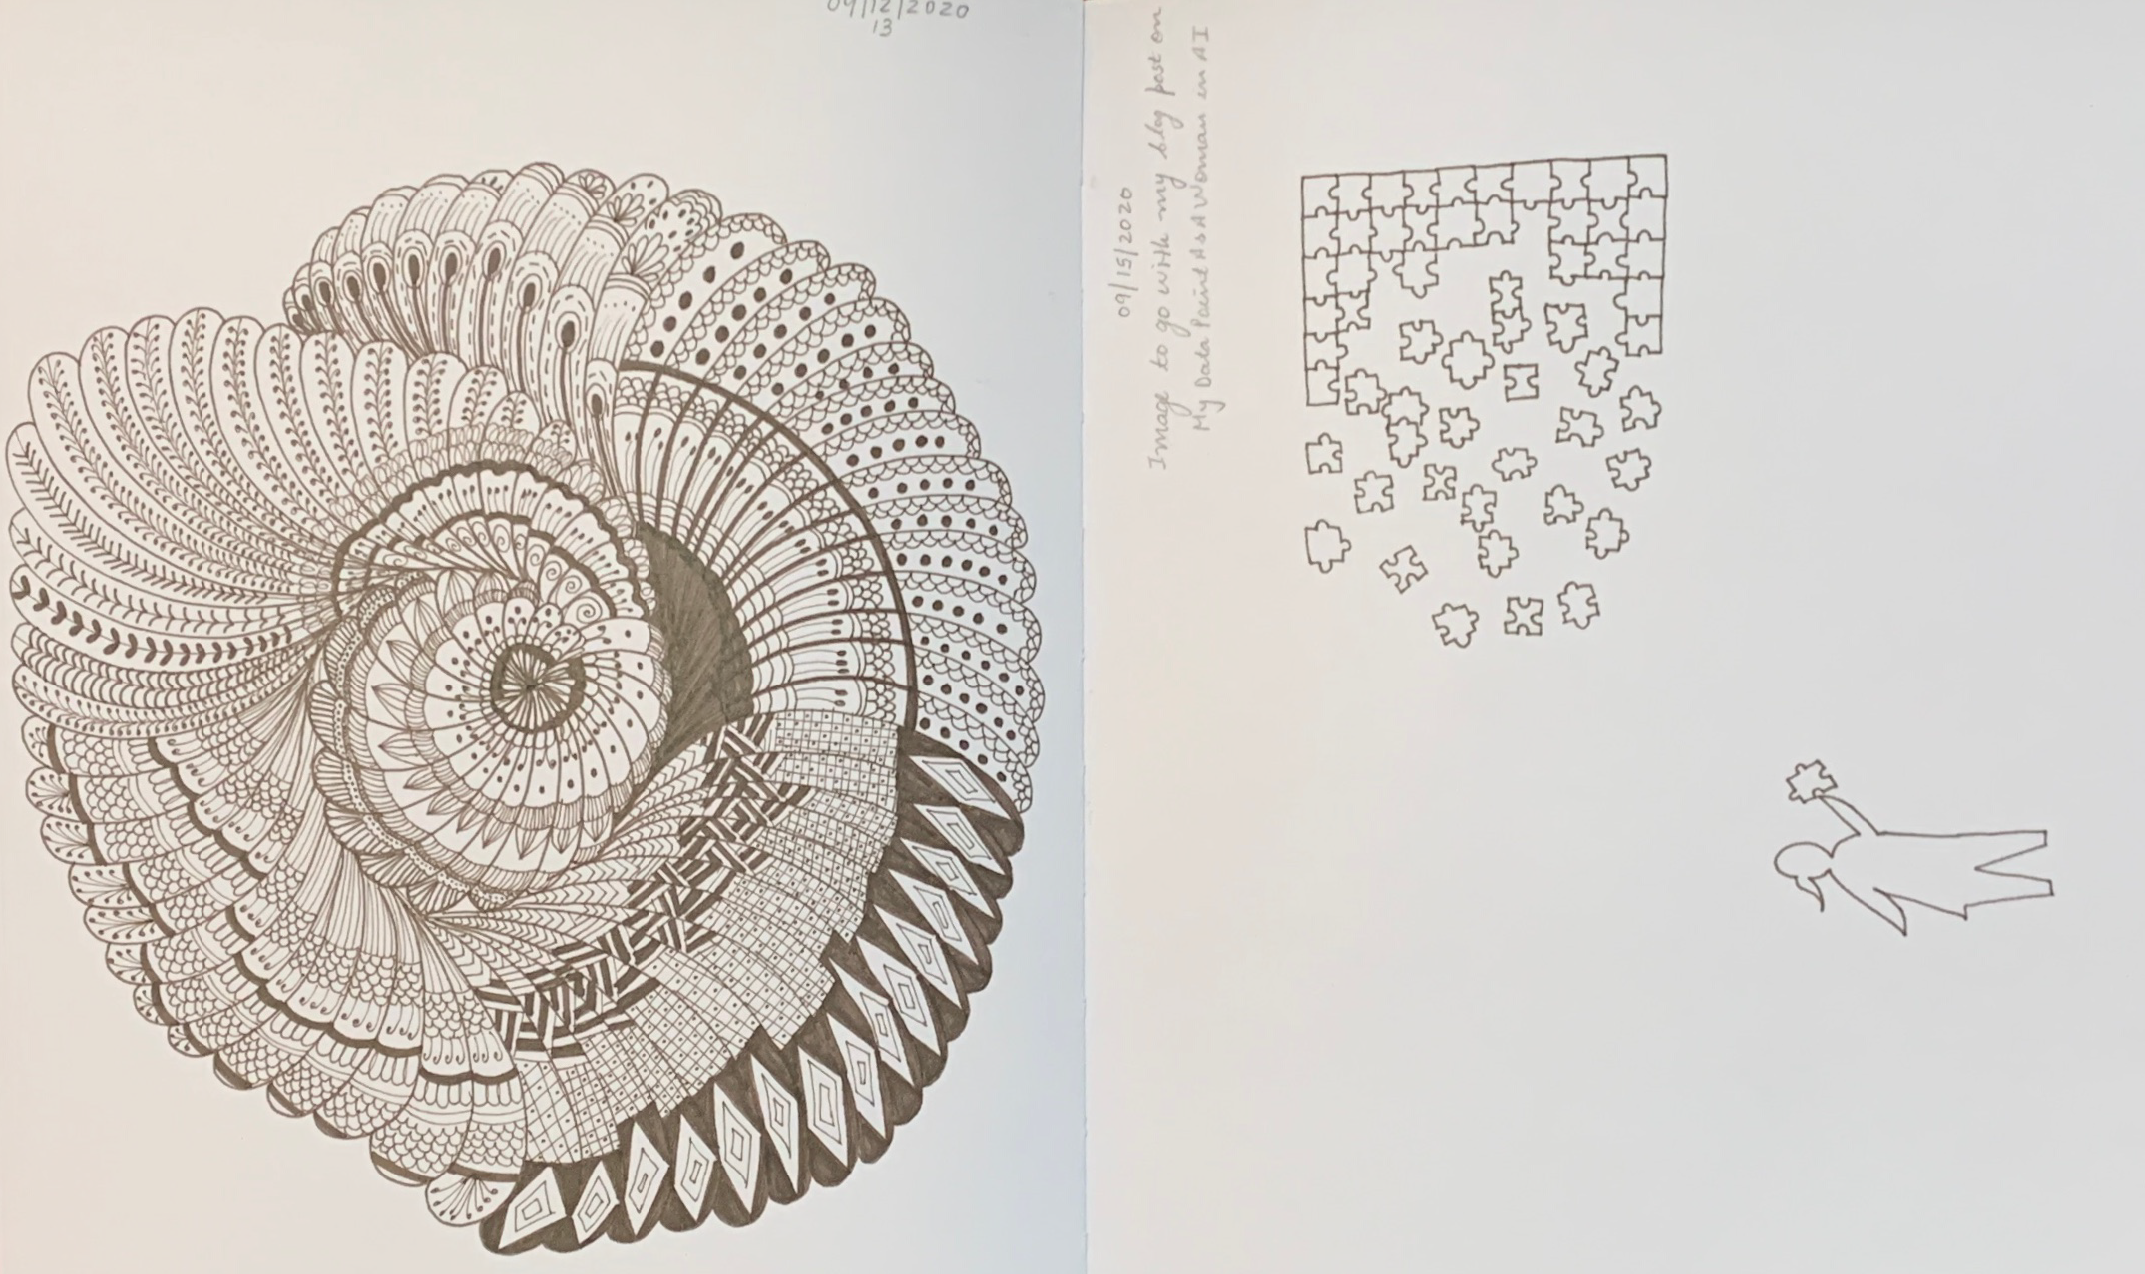 09/12/2020
13
09/15/2020
Image to go with my blog post on
My Data Point As A Woman in AI